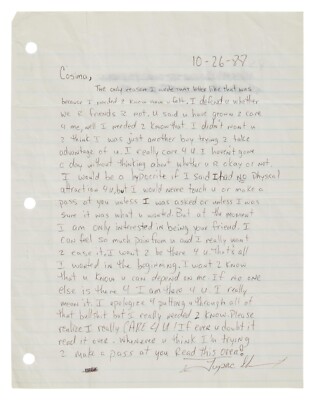 10-26-88
Cosima,
The only reason I made sure like that was
because I needed 2 know how u felt, I defend u whether
we R friends 2 not. U said u have grown 2 care
4 me, well I needed 2 know that I didn't want u
2 think I was just another boy trying 2 take
advantage of u. I really care 4 U I haven't gone
a day without thinking about whether u R okay or not.
I would be a hypocrite if I said I had NO physical
attraction 4 U, but I would never touch u or make a
pass at you unless I was asked or unless I was
sure it was what u wanted. But at the moment
I am only interested in being your friend. I
can feel so much pain from u and I really want
2 ease it. I want 2 be there 4 U. That's all
I wanted in the beginning. I want 2 know
that u know u can depend on me. If no one
else is there 4 U I am there 4 U. I really
mean it. I apologize 4 putting u through all of
that bullshit but I really needed 2 know. Please
realize I really CARE 4 U! If ever u doubt it
read it over. Whenever u think I'm trying
2 make a pass at you Read this over!
Tupac